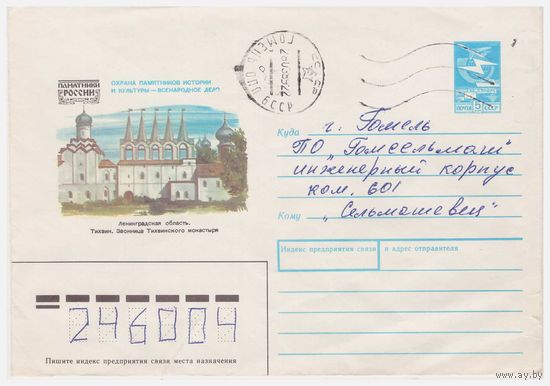 ПАМЯТНИКИ
РОССИИ
ОХРАНА ПАМЯТНИКОВ ИСТОРИИ
И КУЛЬТУРЫ — ВСЕНАРОДНОЕ ДЕЛО
ГОМЕЛЬ
БССР
ПОЧТА
5
Куда
г. Гомель
ПО "Гомсельмаш"
инженерный корпус
ком. 601
Кому
"Сельмашевец"
Ленинградская область.
Тихвин. Звонница Тихвинского монастыря
Индекс предприятия связи и адрес отправителя
246004
Пишите индекс предприятия связи места назначения
www.ay.by